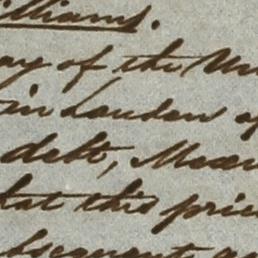 illiams.
ay of the Un
in London of
debt, Mexi
hat this pri
bsequent